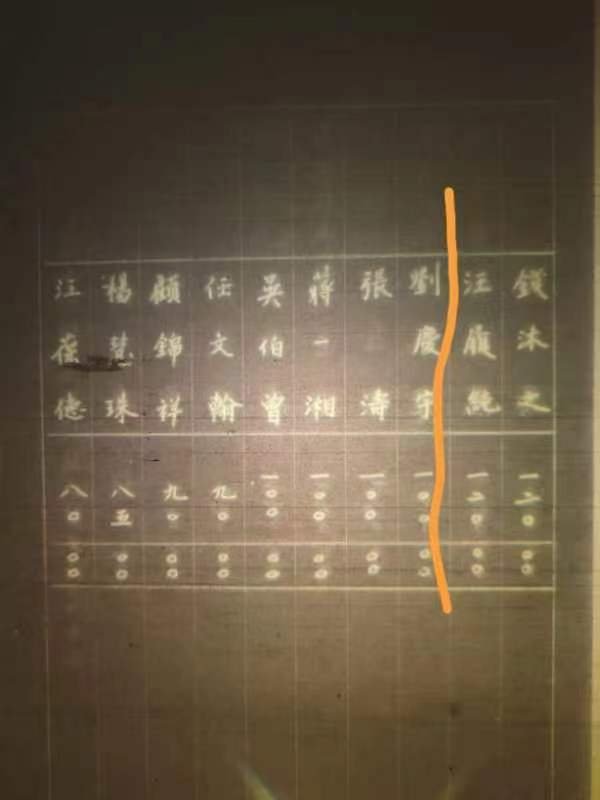 錢沐之 一二〇 〇〇
汪履純 一二〇 〇〇
劉慶宇 一〇〇 〇〇
張濤 一〇〇 〇〇
蔣一湘 一〇〇 〇〇
吳伯曾 一〇〇 〇〇
任文翰 九〇 〇〇
顧錦祥 九〇 〇〇
楊慧珠 八五 〇〇
汪德 八〇 〇〇